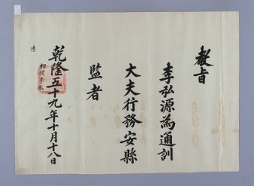 教旨
李弘源為通訓
大夫行務安縣
監者
乾隆五十九年十月十八日